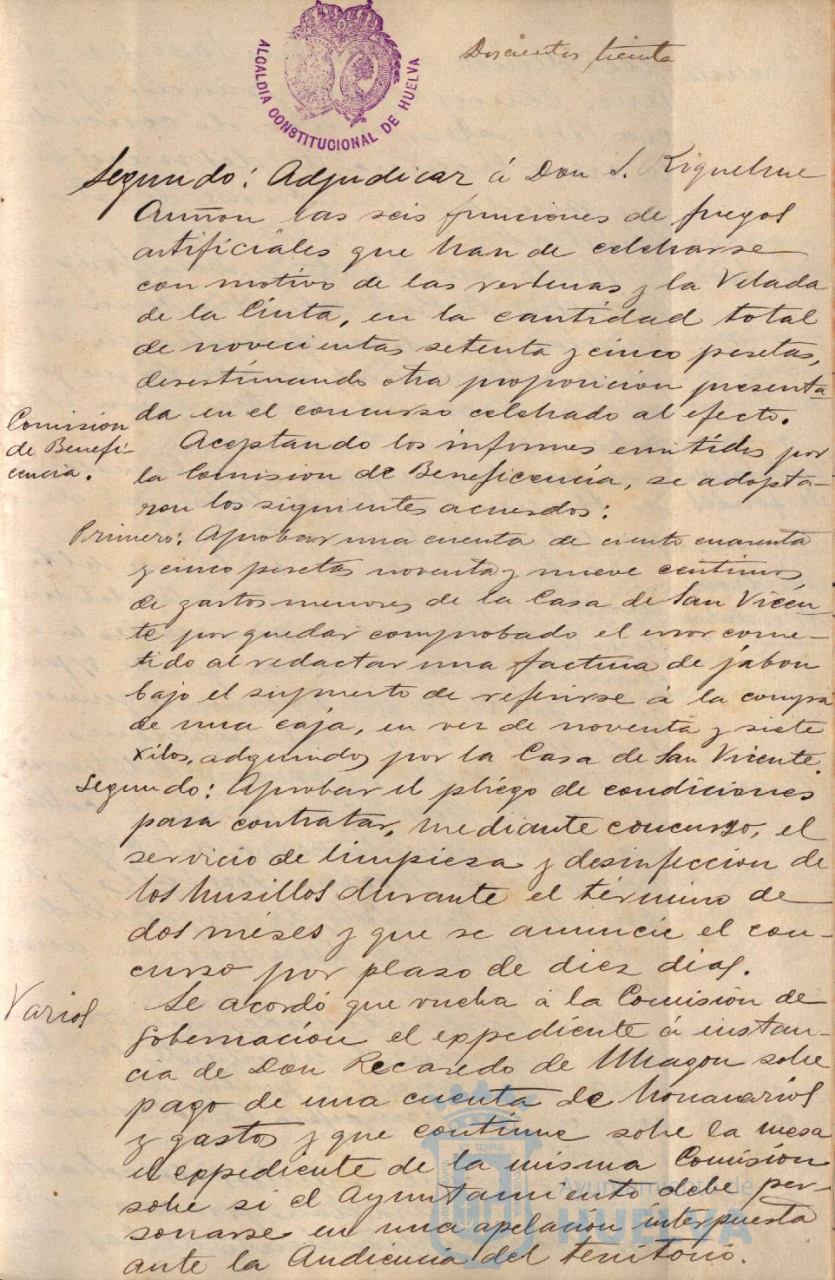 ALCALDIA CONSTITUCIONAL DE HUELVA
Doscientos treinta
Segundo: Adjudicar á Don S. Riquelme
Auñon las seis funciones de fuegos
artificiales que han de celebrarse
con motivo de las verbenas y la Velada
de la Cinta, en la cantidad total
de novecientas setenta y cinco pesetas,
desestimando otra proposicion presenta-
da en el concurso celebrado al efecto.
Comision
de Benefi-
cencia.
Aceptando los informes emitidos por
la Comision de Beneficencia, se adopta-
ron los siguientes acuerdos:
Primero: Aprobar una cuenta de ciento cuarenta
y cinco pesetas noventa y nueve centimos,
de gastos menores de la Casa de San Vicen-
te por quedar comprobado el error come-
tido al redactar una factura de jabon
bajo el supuesto de referirse á la compra
de una caja, en vez de noventa y siete
kilos, adquiridos por la Casa de San Vicente.
Segundo: Aprobar el pliego de condiciones
para contratar, mediante concurso, el
servicio de limpiesa y desinfeccion de
los husillos durante el término de
dos meses y que se anuncie el con-
curso por plaso de diez dias.
Varios
Se acordó que vuelva á la Comisión de
Gobernación el expediente á instan-
cia de Don Recaredo de Uhagon sobre
pago de una cuenta de honorarios
y gastos y que continue sobre la mesa
el expediente de la misma Comisión
sobre si el Ayuntamiento debe per-
sonarse en una apelación interpuesta
ante la Audiencia del territorio.
Ayuntamiento de
HUELVA